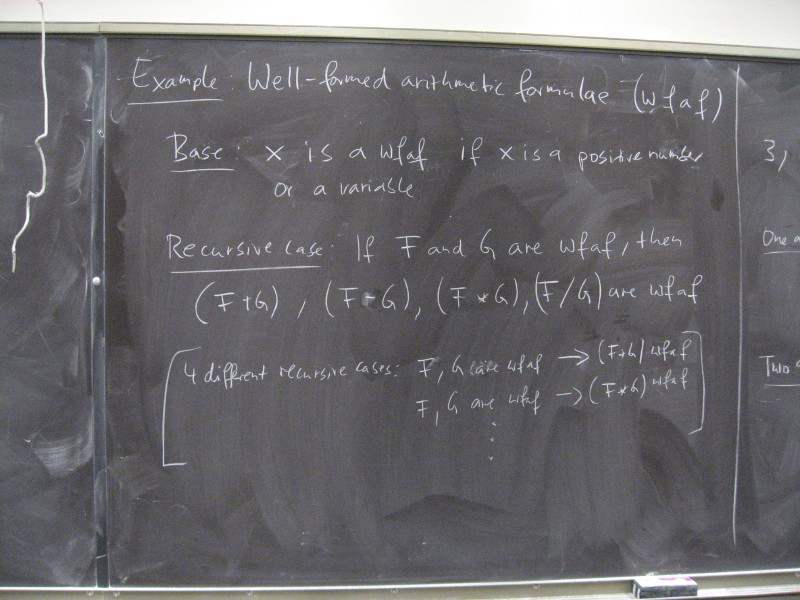 Example: Well-formed arithmetic formulae (wfaf)
Base: x is a wfaf if x is a positive number
or a variable
Recursive case: If F and G are wfaf, then
(F+G), (F-G), (F*G), (F/G) are wfaf
4 different recursive cases: F, G are wfaf → (F+G) wfaf
F, G are wfaf → (F*G) wfaf
3,
One
Two